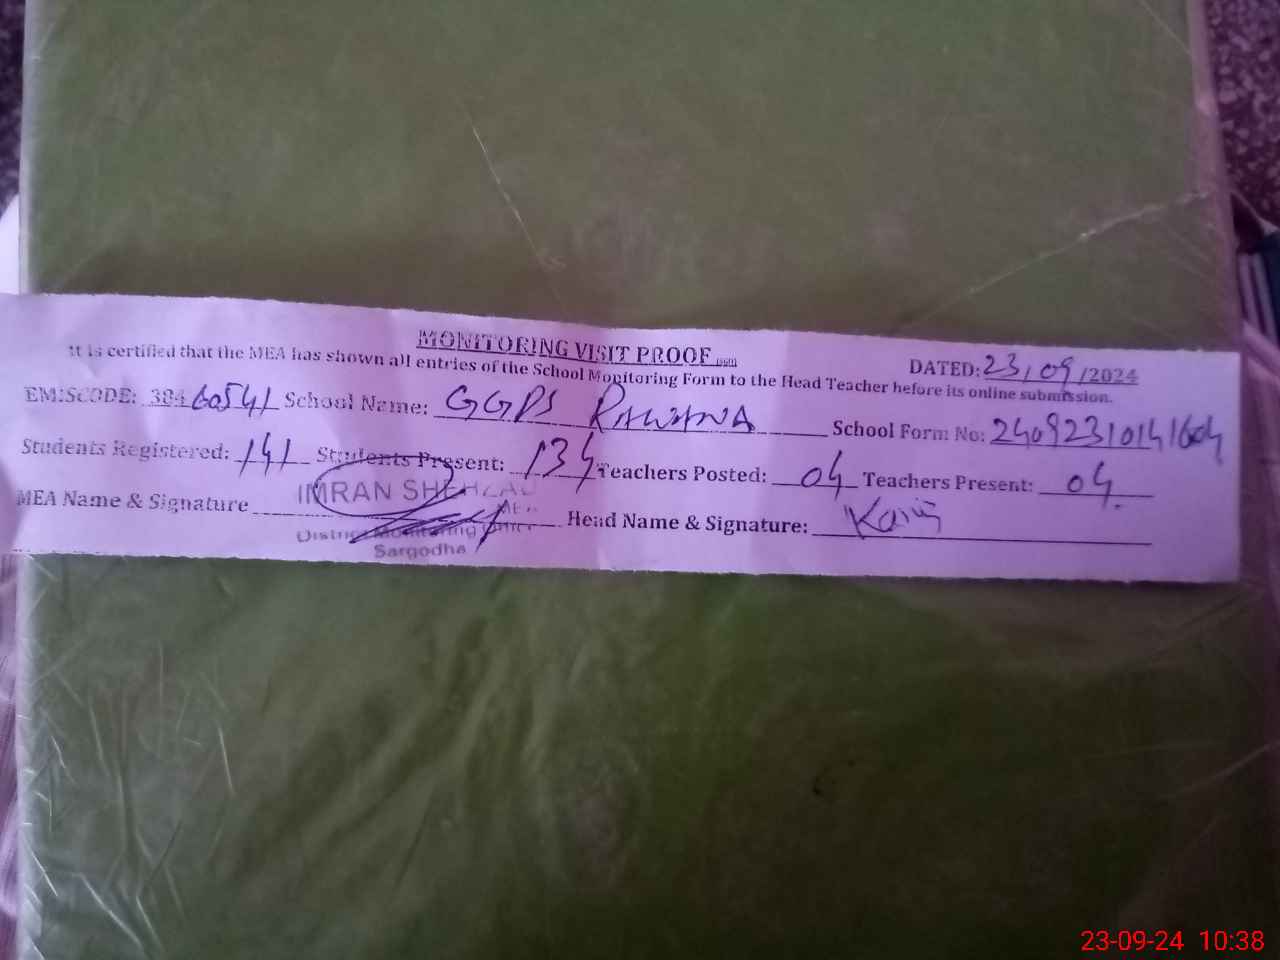 MONITORING VISIT PROOF
DATED: 23/09/2024
It is certified that the MEA has shown all entries of the School Monitoring Form to the Head Teacher before its online submission.
EMISCODE: 38460541 School Name: GGPS RAWANA School Form No: 24092310141604
Students Registered: 141 Students Present: 134 Teachers Posted: 04 Teachers Present: 04
MEA Name & Signature IMRAN SHEHZAD Head Name & Signature:
MEA
District Monitoring Office
Sargodha
23-09-24 10:38